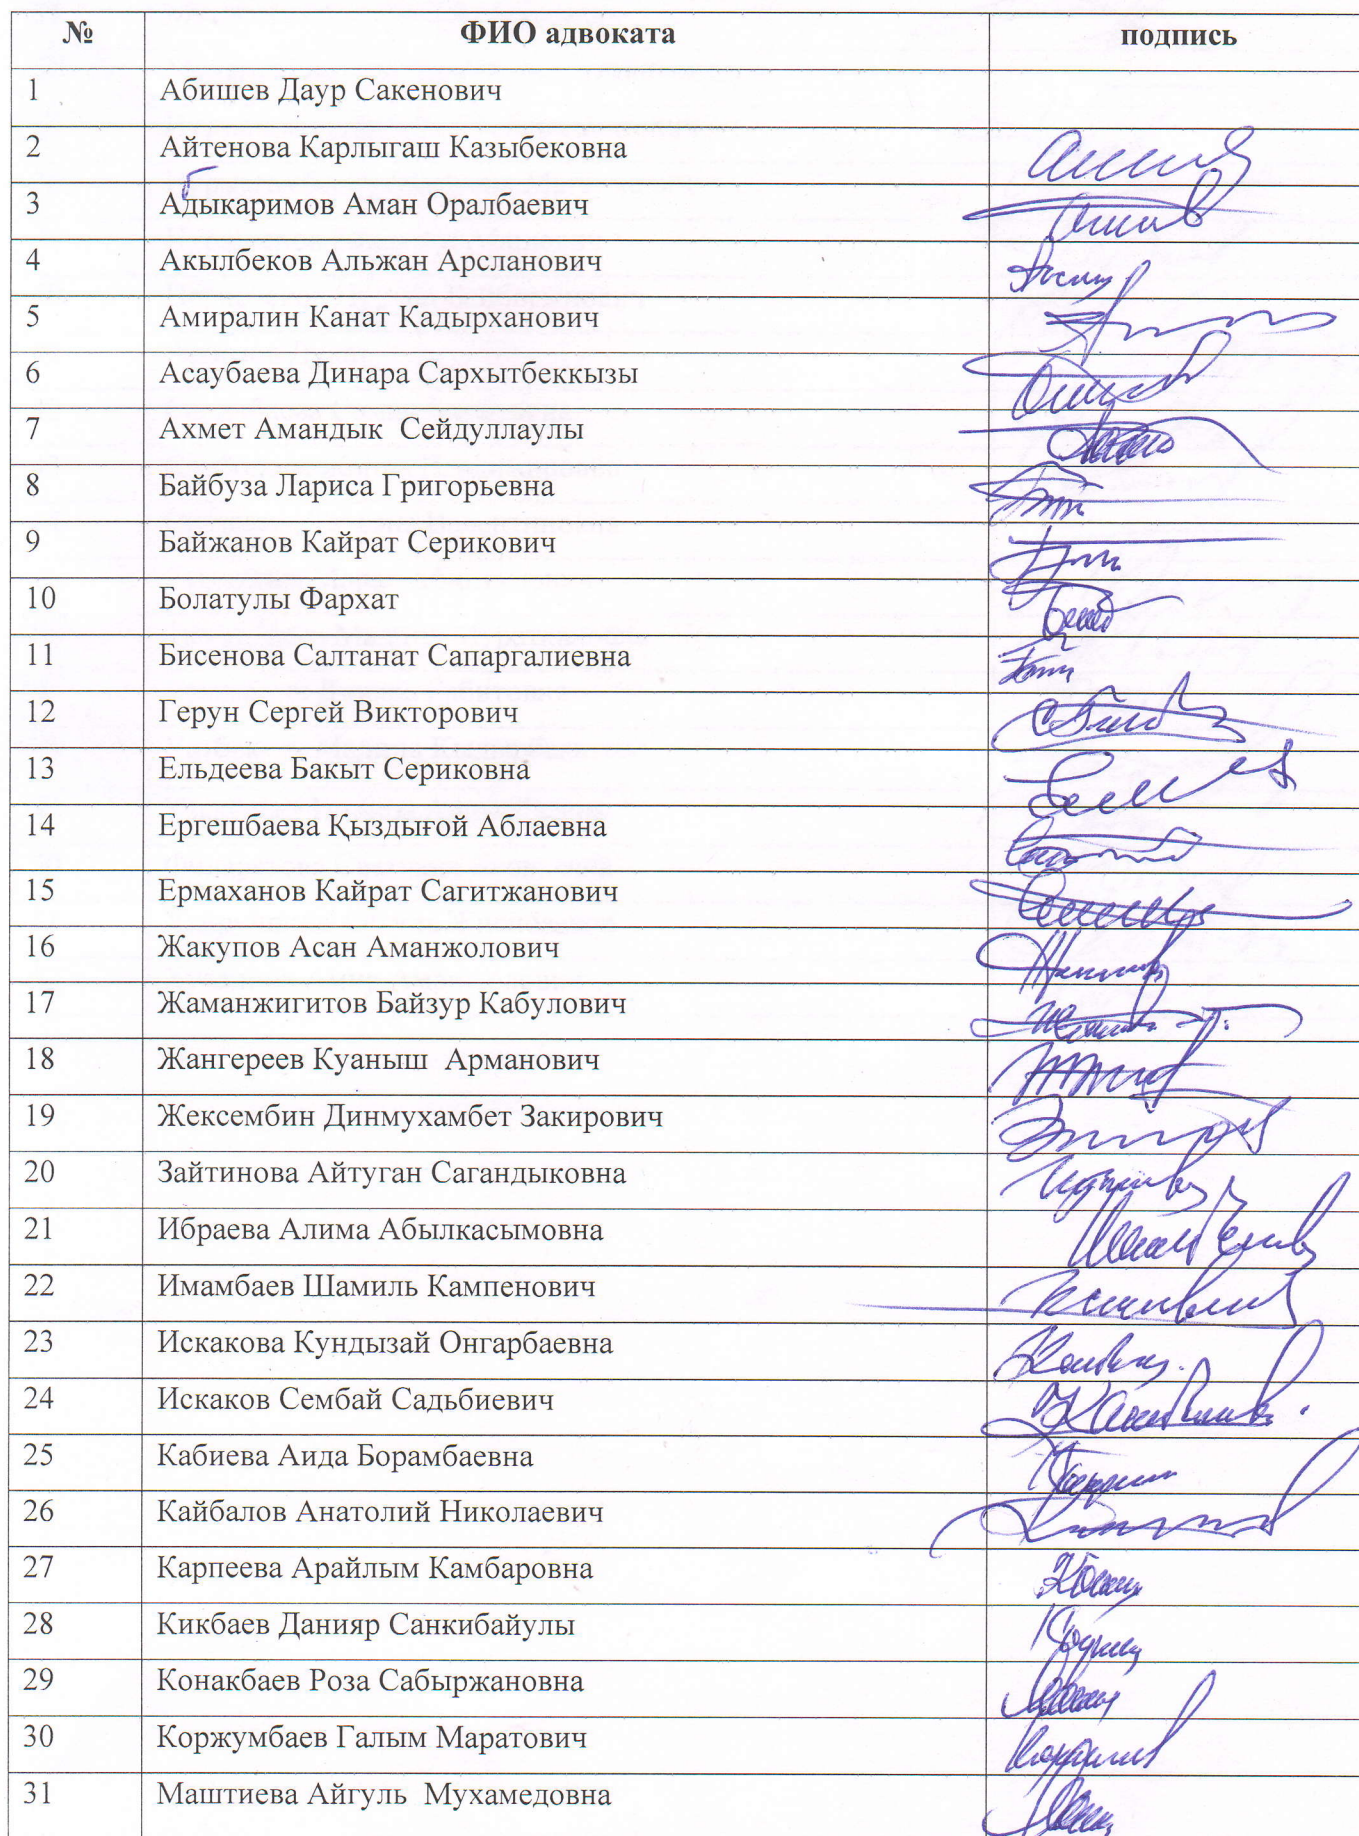 № ФИО адвоката подпись
1 Абишев Даур Сакенович
2 Айтенова Карлыгаш Казыбековна
3 Адыкаримов Аман Оралбаевич
4 Акылбеков Альжан Арсланович
5 Амиралин Канат Кадырханович
6 Асаубаева Динара Сархытбеккызы
7 Ахмет Амандык Сейдуллаулы
8 Байбуза Лариса Григорьевна
9 Байжанов Кайрат Серикович
10 Болатулы Фархат
11 Бисенова Салтанат Сапаргалиевна
12 Герун Сергей Викторович
13 Ельдеева Бакыт Сериковна
14 Ергешбаева Қыздығой Аблаевна
15 Ермаханов Кайрат Сагитжанович
16 Жакупов Асан Аманжолович
17 Жаманжигитов Байзур Кабулович
18 Жангереев Куаныш Арманович
19 Жексембин Динмухамбет Закирович
20 Зайтинова Айтуган Сагандыковна
21 Ибраева Алима Абылкасымовна
22 Имамбаев Шамиль Кампенович
23 Искакова Кундызай Онгарбаевна
24 Искаков Сембай Садьбиевич
25 Кабиева Аида Борамбаевна
26 Кайбалов Анатолий Николаевич
27 Карпеева Арайлым Камбаровна
28 Кикбаев Данияр Санкибайулы
29 Конакбаев Роза Сабыржановна
30 Коржумбаев Галым Маратович
31 Маштиева Айгуль Мухамедовна